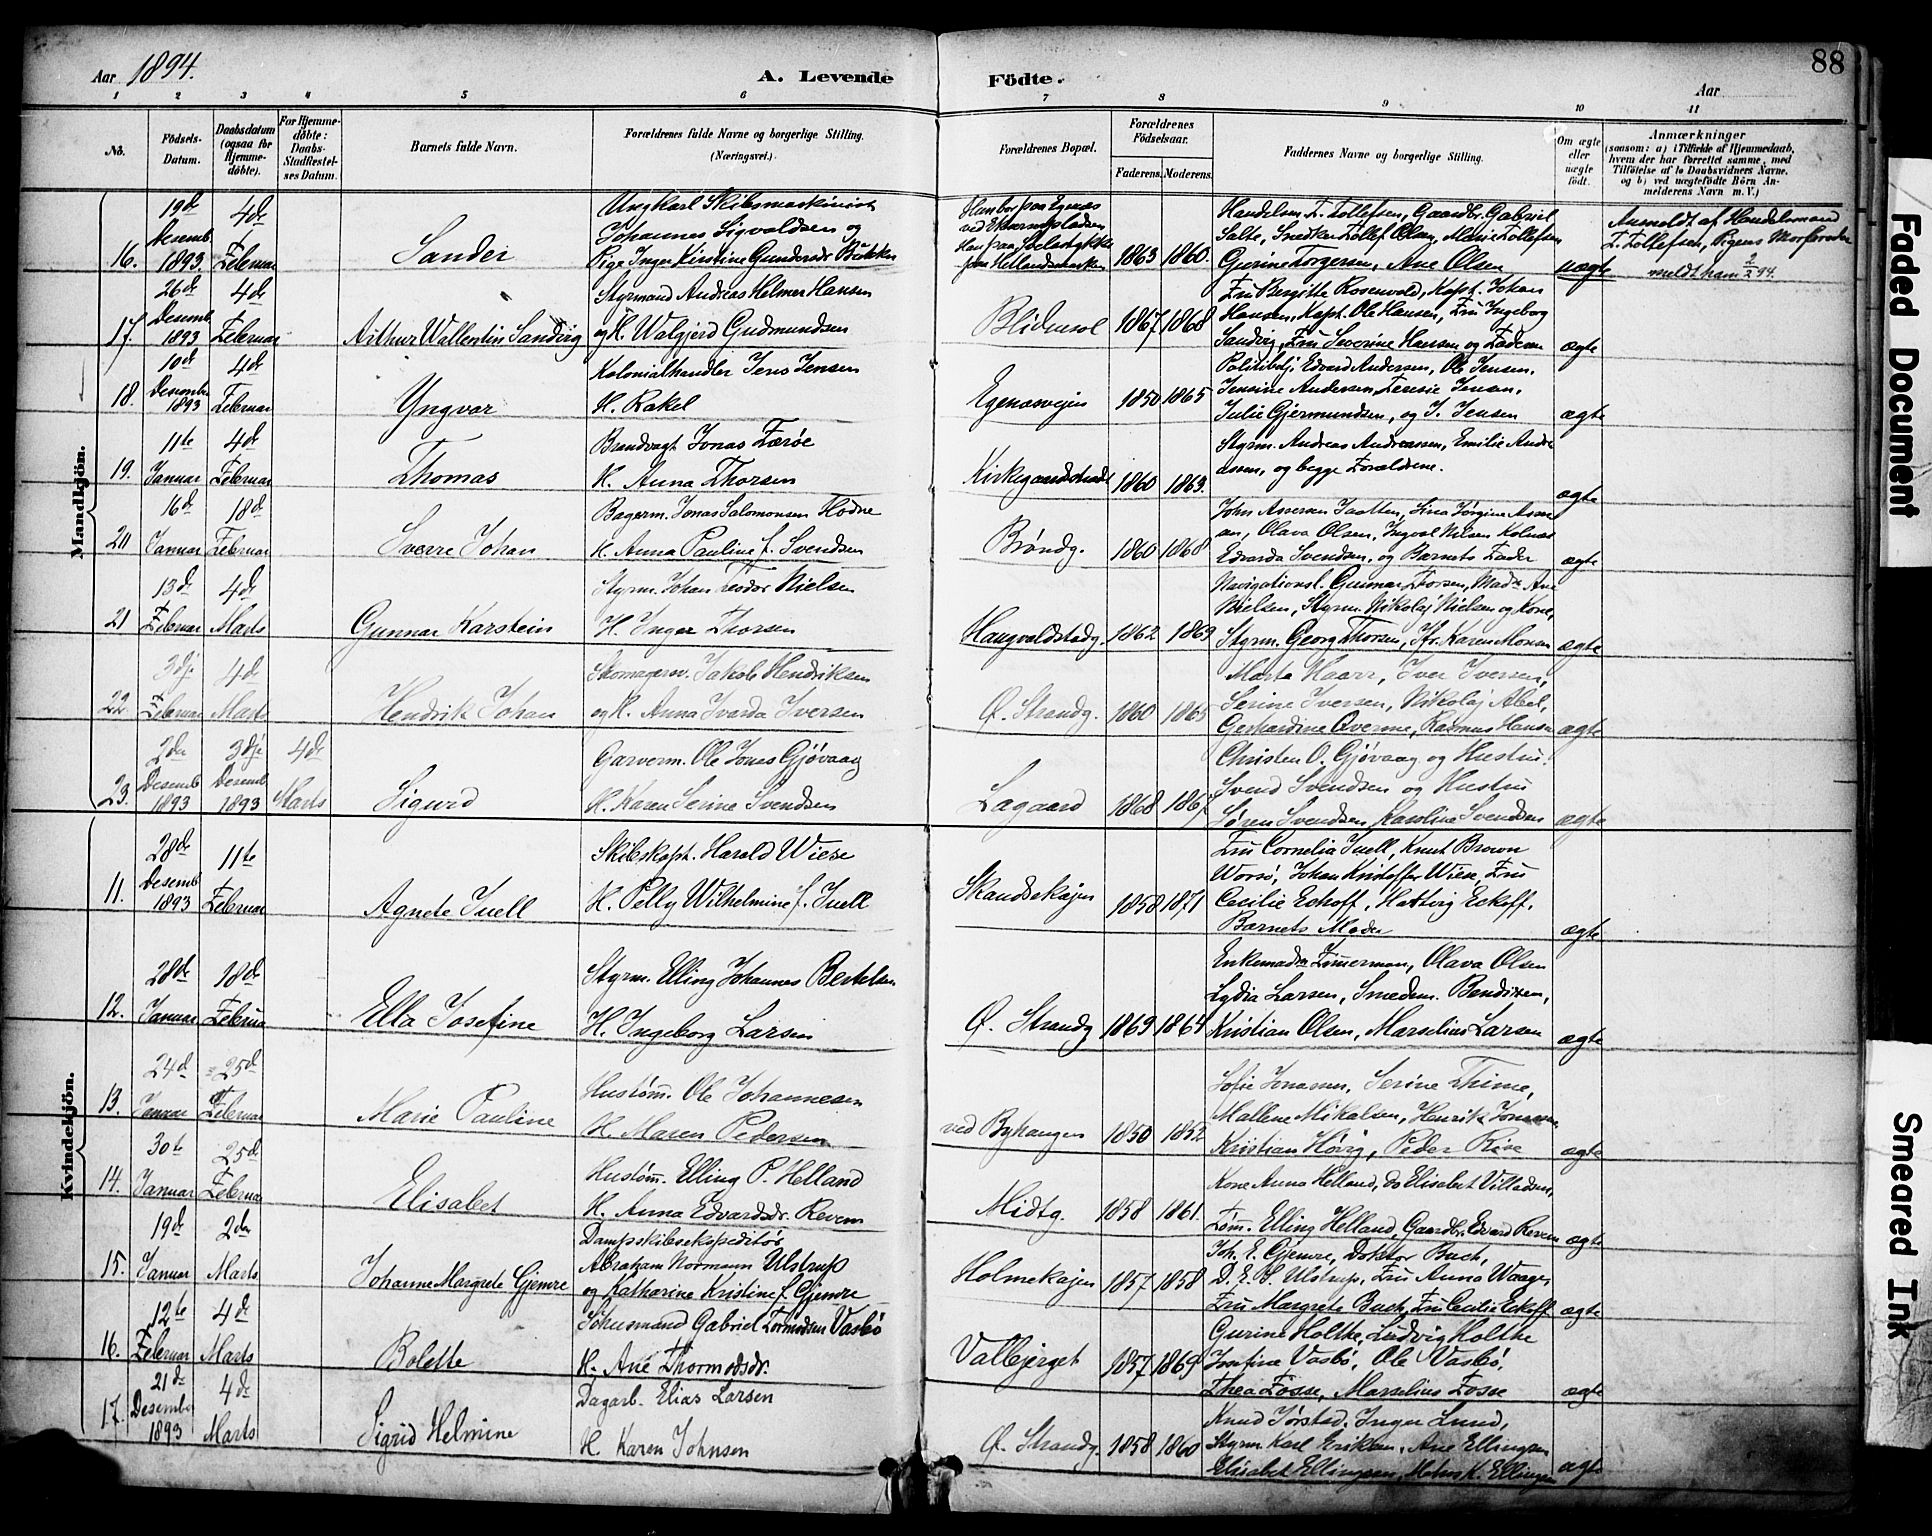 Aar 1894.
A. Levende Födte.
Aar
88
1 2 3 4 5 6 7 8 9 10 11
No.
Födsels-Datum.
Daabsdatum (ogsaa for Hjemme-döbte).
For Hjemme-döbte: Daabs-Stadfæstel-ses Datum.
Barnets fulde Navn.
Forældrenes fulde Navne og borgerlige Stilling. (Næringsvei.)
Forældrenes Bopæl.
Forældrenes Födselsaar.
Faderens. Moderens.
Faddernes Navne og borgerlige Stilling.
Om ægte eller uægte födt.
Anmærkninger
(saasom: a) i Tilfælde af Hjemmedaab,
hvem der har forrettet samme, med
Tilföielse af to Daabsvidners Navne.
og b) ved uægtefödte Börn An-
melderens Navn m. V.)
Mandkjön.
16. 19de Desemb. 1893. 4de Februar Sander
Ungkarl Skibsmaskinist
Johannes Sigvaldsen og
Pige Inger Kirstine Gundersdr. Bukken
Hun bor paa Egenæs
1863 1860.
Handelsm. T. Tollefsen, Gaardbr. Gabriel
Salte, Snedker Tollef Olsen, Marie Tollefsen
Gurine Torgersen, Ane Olsen
uægte
Anmeldt af Handelsmand
T. Tollefsen, Pigens Morforældre
meldt ham 2/2 94.
17. 26de Desemb. 1893 4de Februar Arthur Wallentin Sandvig
Styrmand Andreas Helmer Hansen
og H. Walgjerd Gudmundsen
Blidensol 1867 1868
Fru Bergitte Rosenvold, Kapt. Johan
Hansen, Kapt. Ole Hansen, Fru Ingeborg
Sandvig, Fru Severine Hansen og Faderen
ægte
18. 10de Desemb 1893 4de Februar Yngvar
Kolonialhandler Jens Jensen
H. Rakel
Egenæsvejen 1850 1865
Politibetj. Edvard Andersen, Ole Jensen,
Jensine Andersen, Teresie Jensen,
Julie Gjermundsen, og J. Jensen
ægte
19. 11te Januar 4de Februar Thomas
Brandvagt Jonas Færøe
H. Anna Thorsen
Kirkegaardstræde 1860 1863.
Styrm. Andreas Andreassen, Emilie Andre
assen, og begge Forældrene.
ægte
20 16de Januar 18de Februar Sverre Johan
Bagerm. Jonas Salomonsen Hodne
H. Anna Pauline f. Svendsen
Brøndg. 1860 1868
John Assersen Jaatten, Sina Jørgine Asser
sen, Olava Olsen, Ingval Nilsen Kolnæs
Edvarda Svendsen, og Barnets Fader
ægte
21 13de Februar 4de Marts Gunnar Karstein
Styrm. Johan Teodor Nielsen
H. Inger Thorsen
Haugvaldstadg. 1862 1869
Navigationsl. Gunnar Thorsen, Mad. Ane
Nielsen, Styrm. Nikolaj Nielsen og Kone,
Styrm. Georg Thorsen, Jfr. Karen Monsen
ægte
22. 3dje Februar 4de Marts Hendrik Johan
Skomagerm. Jakob Hendriksen
og H. Anna Ivarda Iversen
Ø. Strandg. 1860 1865
Marta Haarr, Iver Iversen,
Serine Iversen, Nikolaj Abel,
Gerhardine Qverme, Rasmus Hansen
ægte
23. 2den Desemb 1893 3dje Desemb 1893 4de Marts Sigurd
Garverm. Ole Jonas Gjøvaag
H. Karen Serine Svendsen
Lagaard 1868 1867
Christen O. Gjøvaag og Hustru.
Svend Svendsen og Hustru
Søren Svendsen Karoline Svendsen
ægte
Kvindekjön.
11. 28de Desemb 1893 11te Februar Agnete Juell
Skibskapt. Harald Wiese
H. Pelly Wilhelmine f. Juell
Skandsekajen 1858 1871
Fru Cornelia Juell, Knut Brown
Worsø, Johan Kristoffer Wiese, Fru
Cecilie Eckhoff, Hattvig Eckoff,
Barnets Moder
ægte
12. 28de Januar 18de Februar Ella Josefine
Styrm. Elling Johannes Bertelsen
H. Ingeborg Larsen
Ø. Strandg 1869 1864
Enkemadm Zimmerman, Olava Olsen
Lydia Larsen, Smedem. Bendixen,
Kristian Olsen, Marselius Larsen
ægte
13. 24de Januar 25de Februar Marie Pauline
Hustømm. Ole Johannesen
H. Maren Pedersen
ved Byhaugen 1850 1852
Sofie Jonassen, Serine Thime,
Mallene Mikalsen, Henrik Jonassen,
Kristian Høvig, Peder Rise
ægte
14. 30te Januar 25de Februar Elisabet
Hustømm. Elling P. Helland
H. Anna Edvardsdr. Revem
Midtg. 1858 1861.
Kone Anna Helland, do Elisabet Villadsen,
Tømm. Elling Helland, Gaardbr. Edvard Revem
ægte
15. 19de Januar 2den Marts Johanne Margrete Gjemre
Dampskibsekspeditør
Abraham Normann Ulstrup
og Katharine Kristine f. Gjemre
Holmekajen 1857 1858
Joh. E. Gjemre, Doktor Buch,
D. E. S. Ulstrup, Fru Anna Waage,
Fru Margrete Buch, Fru Cecilie Eckoff
ægte
16. 12te Februar 4de Marts Bolette
Gabriel Tormodsen Vasbø
H. Ane Thormodsdr.
Valbjerget 1857 1869
Gurine Holthe, Ludvig Holthe
Josefine Vasbø, Ole Vasbø,
Thea Fosse, Marselius Fosse
ægte
17. 21de Desember 1893 4de Marts Sigrid Helmine
Dagarb. Elias Larsen
H. Karen Johnsen
Ø. Strandg. 1858 1860
Knud Jørstad, Inger Lund,
Styrm. Karl Eriksen, Ane Ellingsen
Elisabet Ellingsen, K. Ellingsen
ægte
Faded Document
Smeared Ink